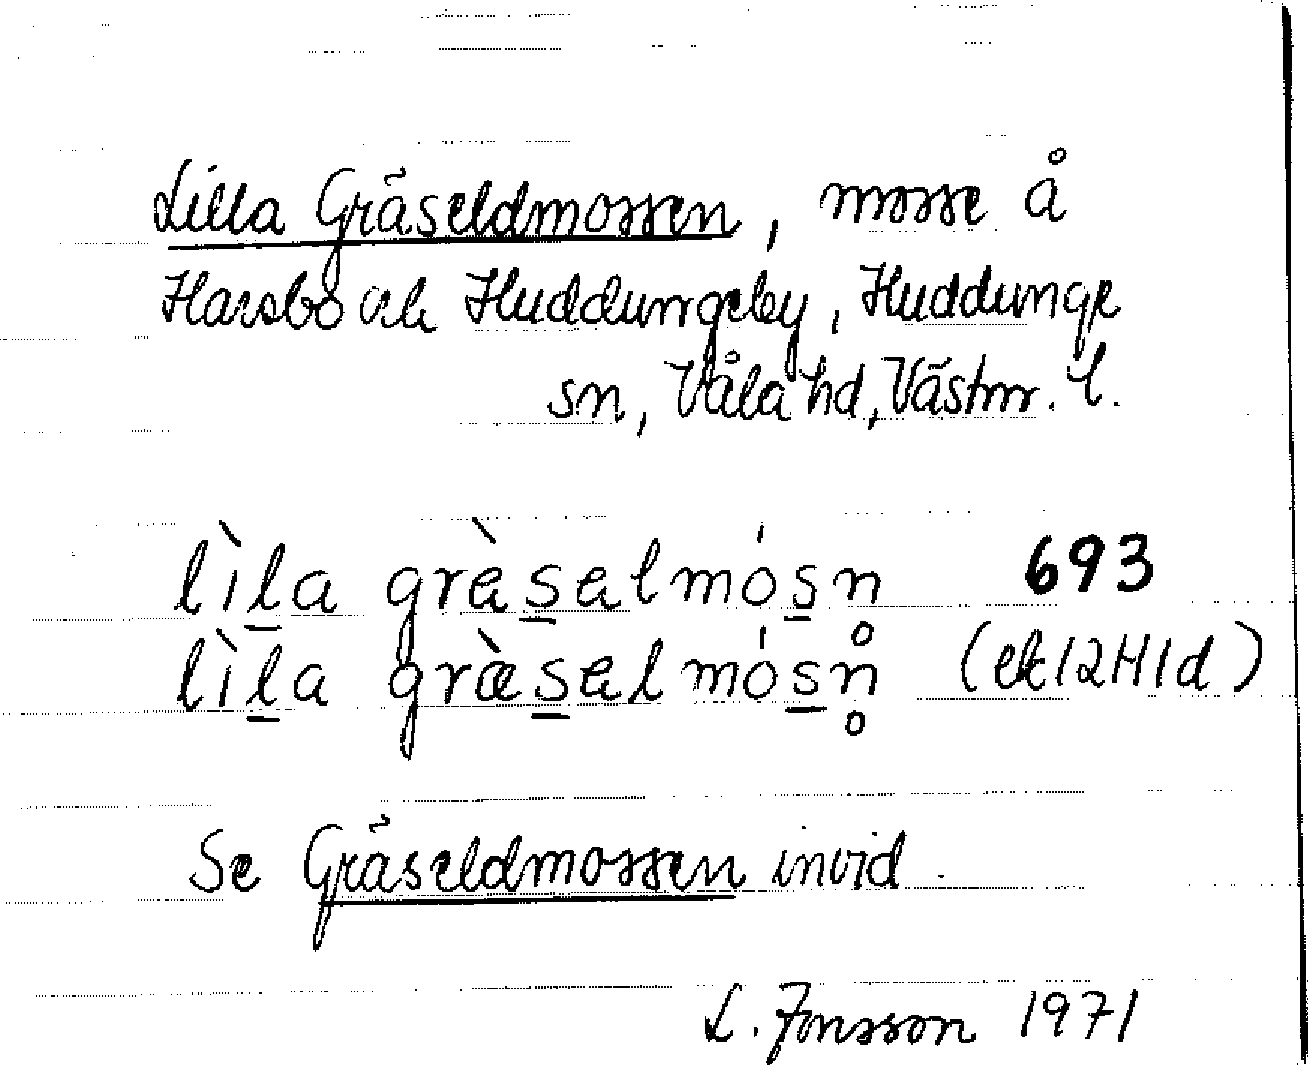 Lilla Gräseldmossen, mosse å
Harsbo och Huddungeby, Huddunge
sn, Våla hd, Västm. l.
lìla gràselmósn 693
lìla græ̀selmósn̥ (ek 12H1d)
Se Gräseldmossen invid.
L. Jonsson 1971